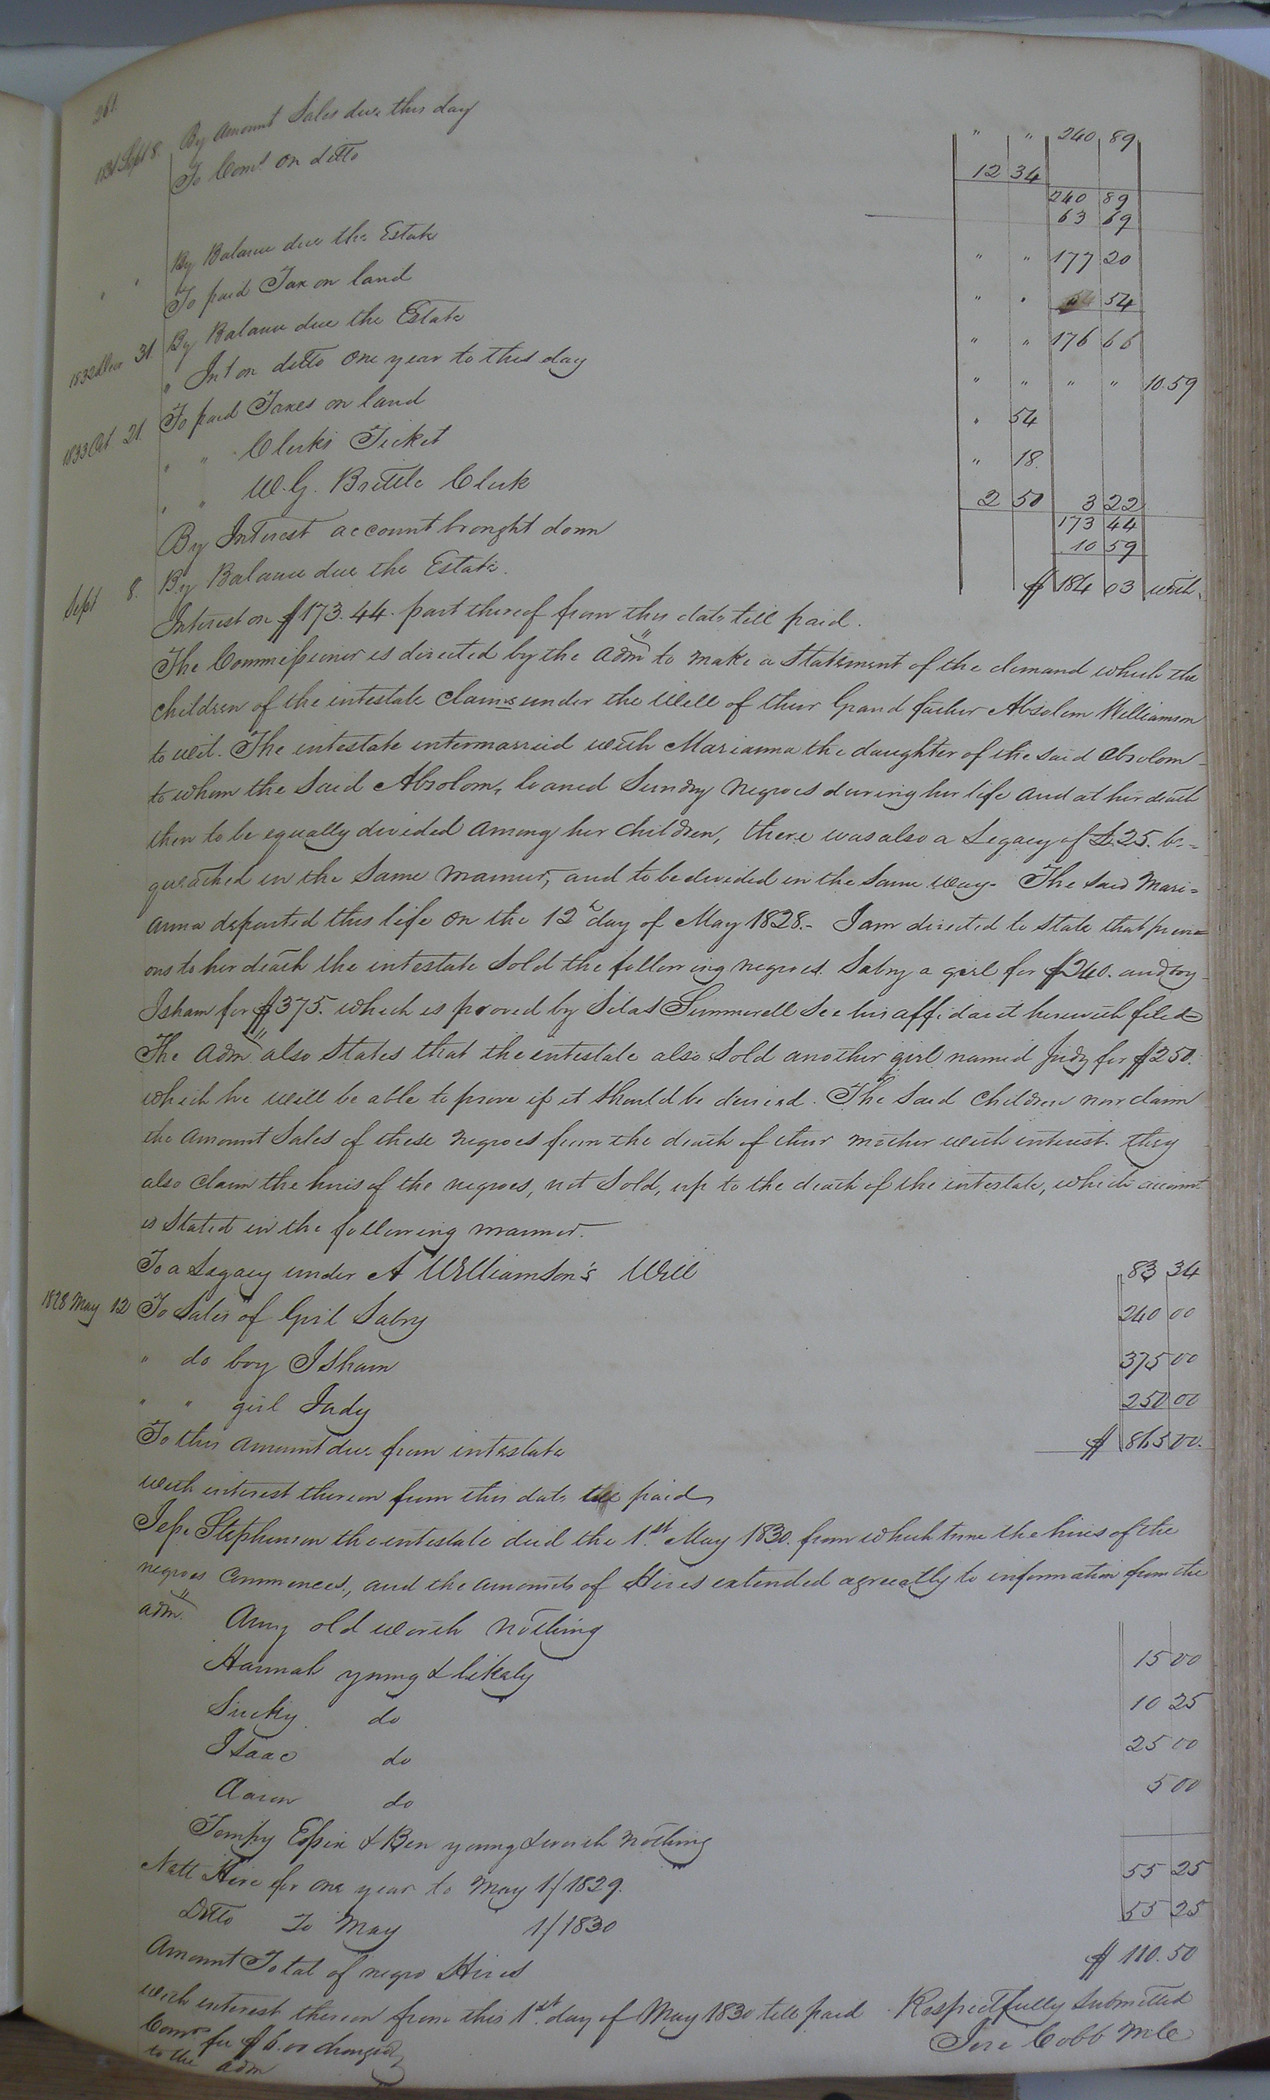 261
1831 Sept 8. By amount Sales due this day " " 240 89
To Coms. on ditto 12 34
240 89
63 69
" " By Balance due the Estate " " 177 20
To paid Tax on land " " 54
1832 Decr 31. By Balance due the Estate " " 176 66
" Int on ditto One year to this day " " " " 10.59
1833 Oct. 21. To paid Taxes on land " 54
" " Clerks Ticket " 18.
" " W.G. Brittle Clerk 2 50 3 22
173 44
By Interest account brought down 10 59
Sept 8. By Balance due the Estate. $ 184 03 with
Interest on $173.44. part thereof from this date till paid.
The Commissioner is directed by the adm to make a Statement of the demand which the
children of the intestate claims under the Will of their Grand father Absolem Williamson
to wit. The intestate intermarried with Marianna the daughter of the said Absolom
to whom the Said Absolom, loaned Sundry Negroes during her life and at her death
then to be equally divided among her children, there was also a Legacy of £25. be=
queathed in the Same manner, and to be devided in the Same way. The said Mari=
anna departed this life on the 12th day of May 1828.- I am directed to state that previ=
ous to her death the intestate Sold the following negroes. Sabry a girl for $240. and boy
Isham for $375. which is proved by Silas Summerell See his affidavit herewith filed
The adm also States that the intestate also Sold another girl named Judy for $250.
which he will be able to prove if it should be denied. The said children now claim
the amount Sales of these negroes from the death of their mother with interest. they
also claim the hires of the negroes, not Sold, up to the death of the intestate, which account
is Stated in the following manner.
To a Legacy under A Williamson's Will 83 34
1828 May 12 To Sales of Girl Sabry 240 00
" do boy Isham 375 00
" " girl Judy 250 00
To this amount due from intestate $ 865 00.
with interest thereon from this date till paid
Jesse Stephenson the intestate died the 1st. May 1830. from which time the hires of the
negroes Commences, and the amounts of Hires extended agreeably to information from the
adm. Amy old worth nothing
Hannah young & likely 15 00
Sucky do 10 25
Isaac do 25 00
Aaron do 5 00
Tempy Essix & Ben young & worth nothing
Nett Hire for one year to May 1/1829. 55 25
Ditto To May 1/1830 55 25
Amount Total of negro Hires $ 110.50
with interest thereon from this 1st. day of May 1830 till paid Respectfully Submitted
Comrs fee $6.00 charged Jere Cobb
to the adm